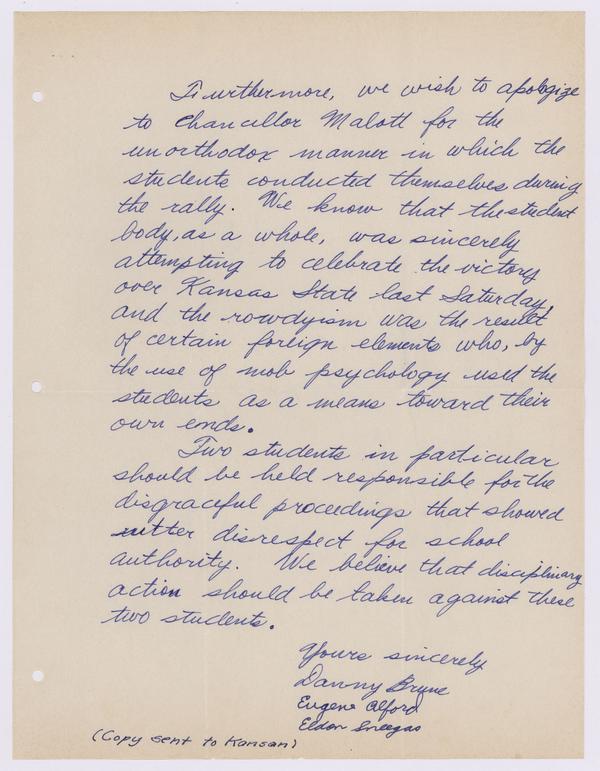 Furthermore, we wish to apologize
to Chancellor Malott for the
unorthodox manner in which the
students conducted themselves during
the rally. We know that the student
body, as a whole, was sincerely
attempting to celebrate the victory
over Kansas State last Saturday,
and the rowdyism was the result
of certain foreign elements who, by
the use of mob psychology used the
students as a means toward their
own ends.
Two students in particular
should be held responsible for the
disgraceful proceedings that showed
utter disrespect for school
authority. We believe that disciplinary
action should be taken against these
two students.
Yours sincerely
Danny Bryne
Eugene Alford
Eldon Sneegas
(Copy sent to Kansan)